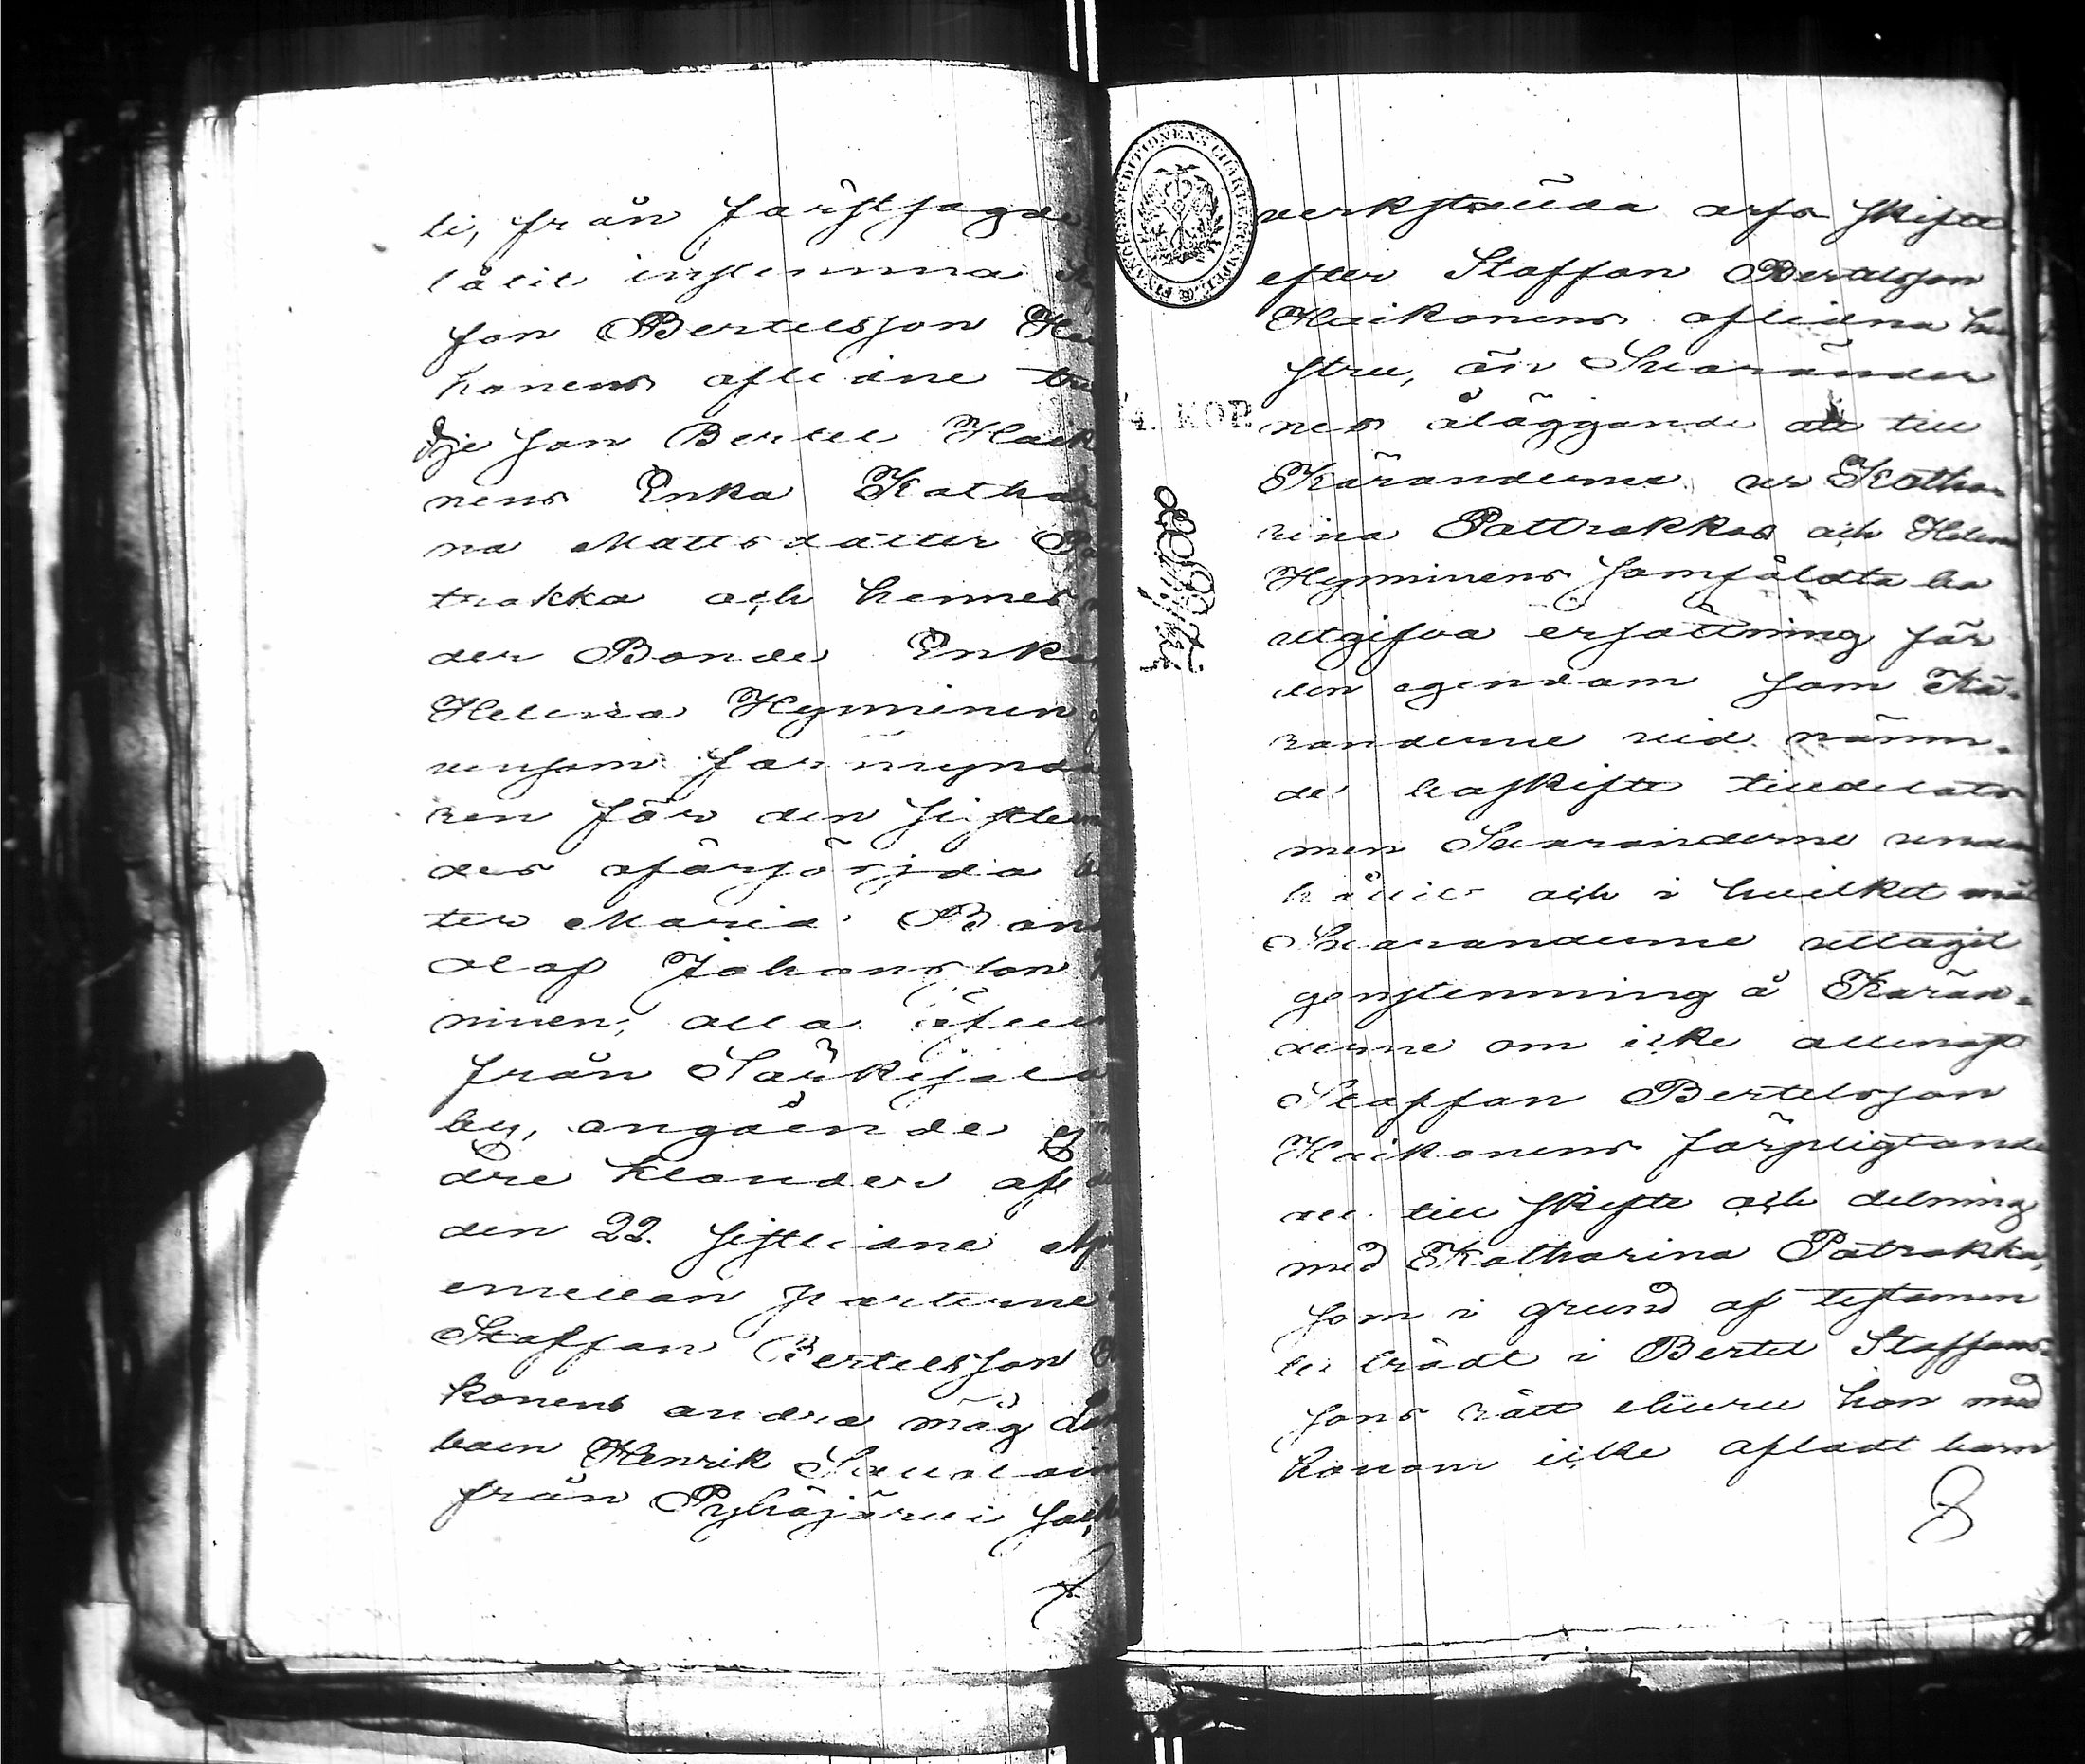 li, från förstsagde
låtit instemma
fan Bertelsson
konens aflidne
dje son Bertel Haik
nens Enka Katha
na Mattsdotter
trakka och hennes
der Bonde Enka
Helena Hyninen
som förmynda
ren för den sistlem
des oförsörjda
ter Maria
Olaf Johansson
ninen, alla
från Särkisalo
by, angående
dre klander af
den 22. sistlidne
emellan parterne
Staffan Bertelsson
konens andra måg
Henrik
från Pyhäjärvi
FINANCE EXPEDITIONENS CHARTÆ STEMPEL
4. KOP.
verkstälda arfs skifte
efter Staffan Bertelsson
Haikonens aflidna hu
stru, än Svarander
nes åläggande att till
Käranderne, ur Katha-
rina Pattrakkas och Helena
Hyninens samfäldta bo
utgifva ersättning för
den egendom som Kä-
randerne vid nämn-
de boskifte tilldelats
men Svaranderne undan
hållit och i hvilket mål
Svaranderne uttagit
genstemning å Käran-
derne om icke allenast
Staffan Bertelsson
Haikonens förpligtande
till skifte och delning
med Katharina Patrakka,
som i grund af testamen
te trädt i Bertel Staffans-
sons rätt ehuru hon med
honom icke afladt barn